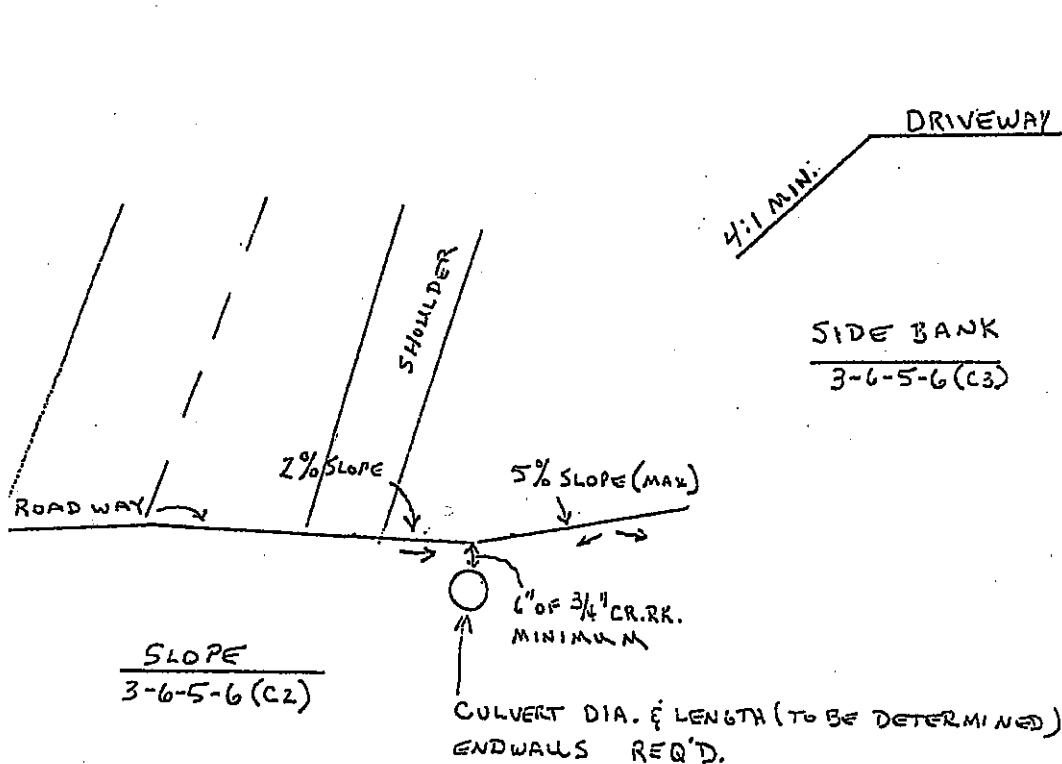 DRIVEWAY
4:1 MIN.
SHOULDER
SIDE BANK
3-6-5-6 (C3)
2% SLOPE
5% SLOPE (MAX)
ROADWAY
6" OF 3/4" CR.RK.
MINIMUM
SLOPE
3-6-5-6 (C2)
CULVERT DIA. & LENGTH (TO BE DETERMINED)
ENDWALLS REQ'D.